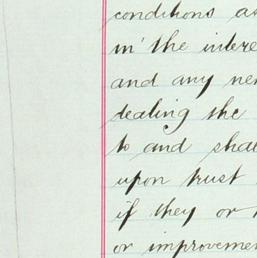 conditions as
in the intere
and any ne
dealing the
to and shal
upon trust
if they or
or improveme